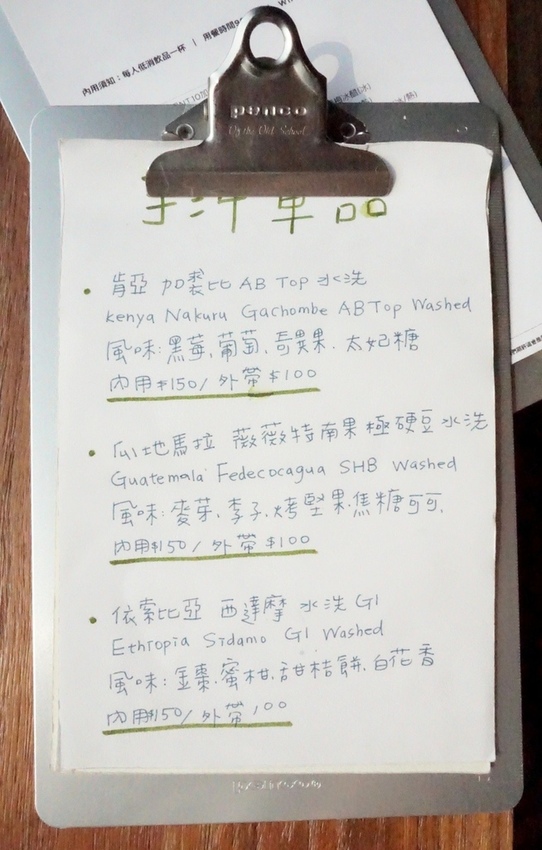 內用須知：每人低消飲品一杯 ｜ 用餐時間
penco
By the Old School
手沖單品
肯亞 加裘比 AB Top 水洗
kenya Nakuru Gachombe AB Top Washed
風味：黑莓、葡萄、奇異果、太妃糖
內用$150/ 外帶$100
瓜地馬拉 薇薇特南果 極硬豆 水洗
Guatemala Fedecocagua SHB Washed
風味：麥芽、李子、烤堅果、焦糖可可、
內用$150/ 外帶$100
依索比亞 西達摩 水洗 G1
Ethiopia Sidamo G1 Washed
風味：金棗、蜜柑、甜桔餅、白花香
內用$150/ 外帶100